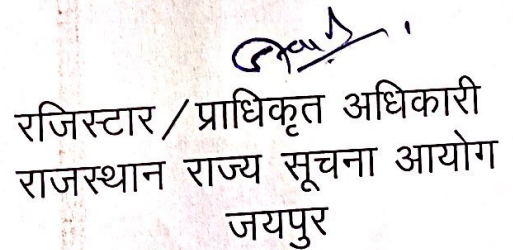 रजिस्टार/प्राधिकृत अधिकारी
राजस्थान राज्य सूचना आयोग
जयपुर